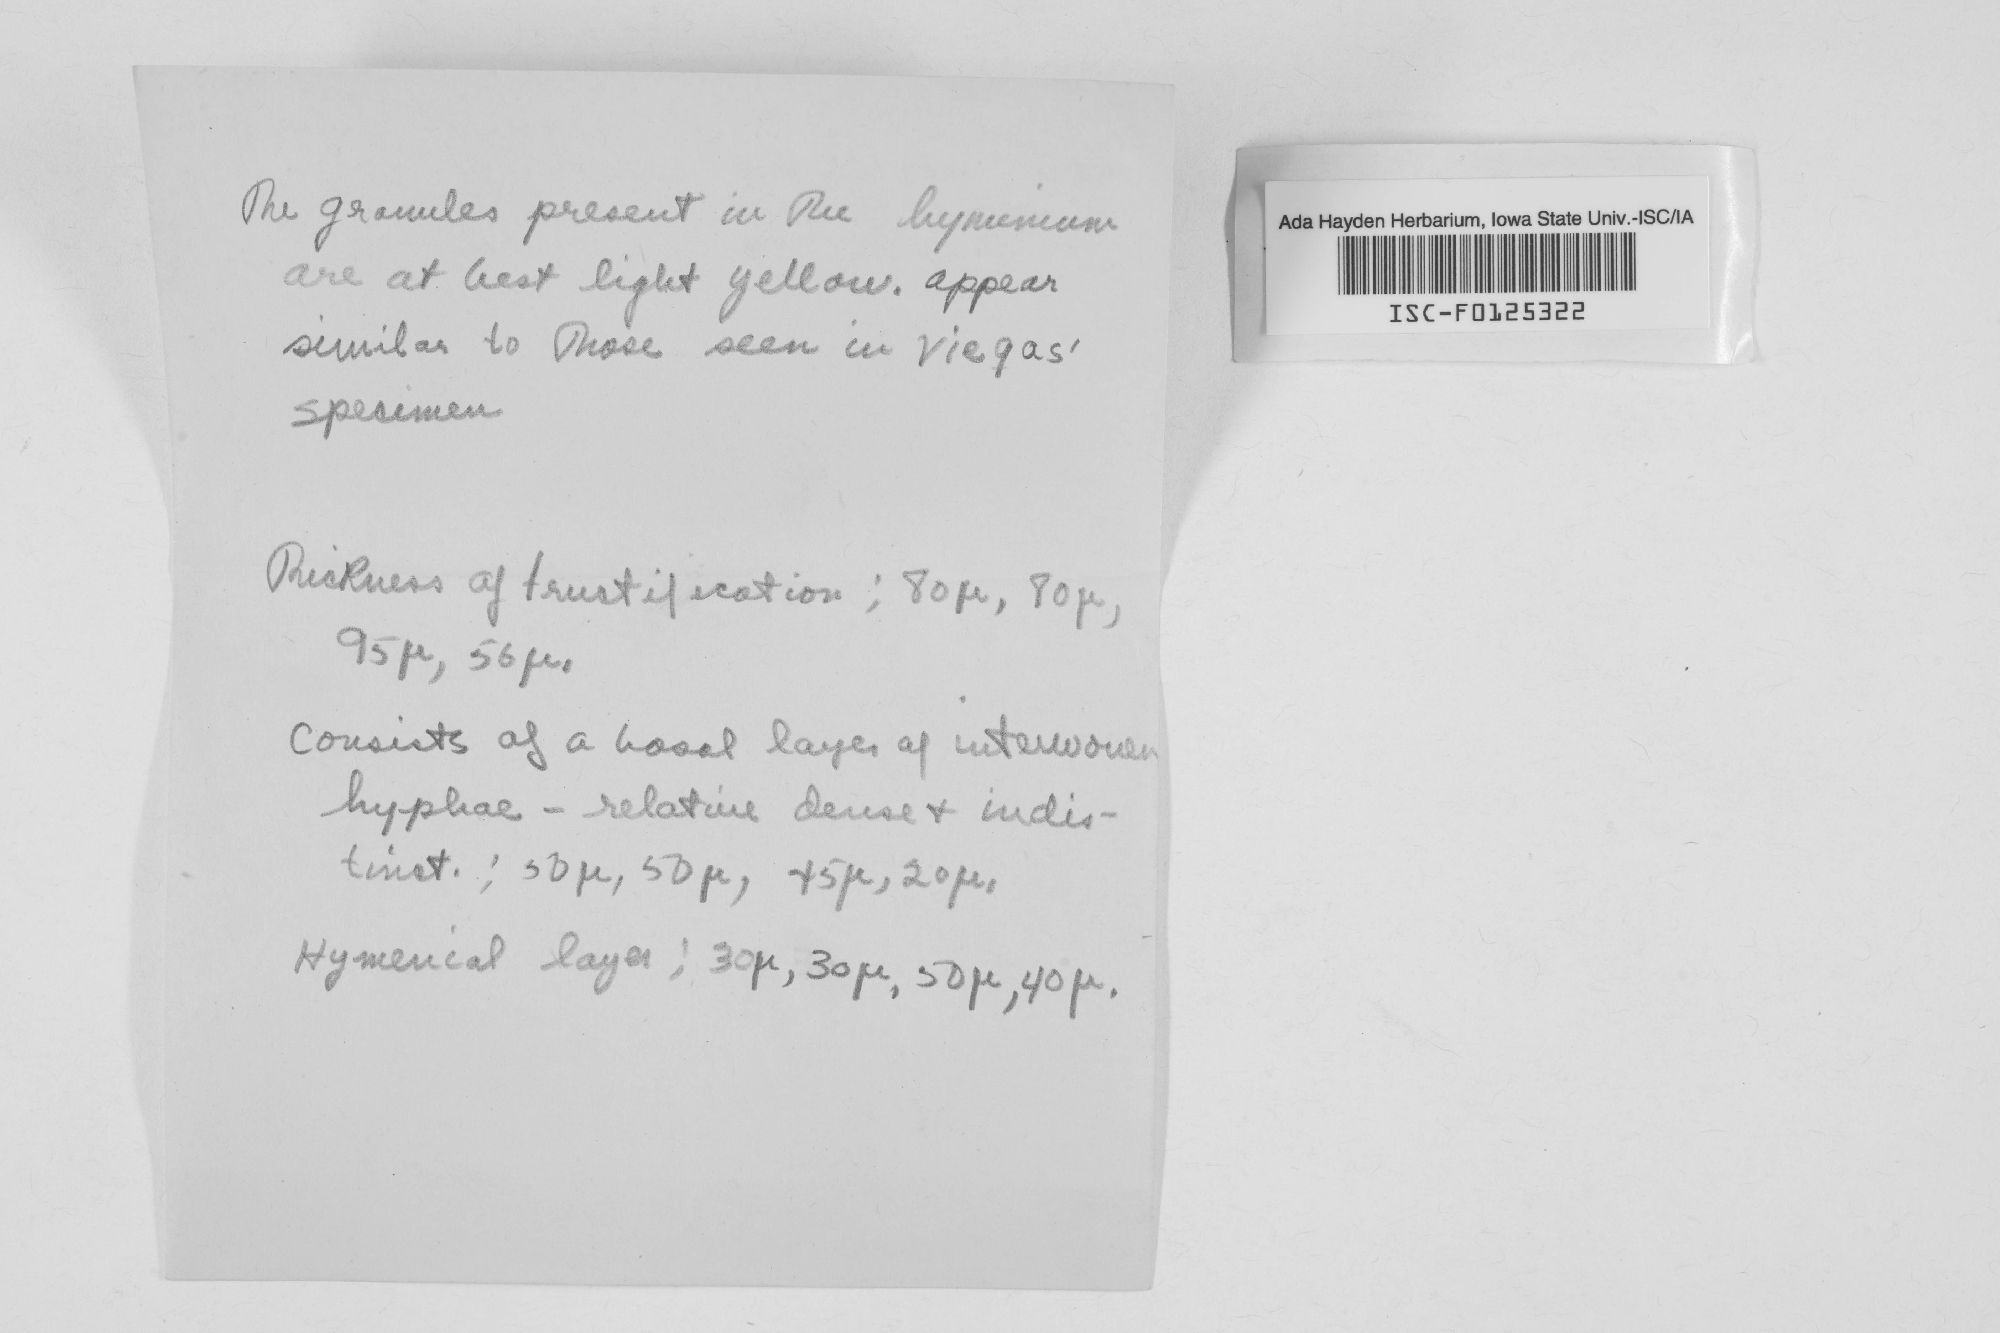 The granules present in the hymenium
are at best light yellow. appear
similar to those seen in Viegas'
specimen
Thickness of frustification ; 80μ, 80μ,
95μ, 56μ.
Consists of a basal layer of interwoven
hyphae - relative dense + indis-
tinct. ; 50μ, 50μ, 45μ, 20μ.
Hymenial layer ; 30μ, 30μ, 50μ, 40μ.
Ada Hayden Herbarium, Iowa State Univ.-ISC/IA
ISC-F0125322